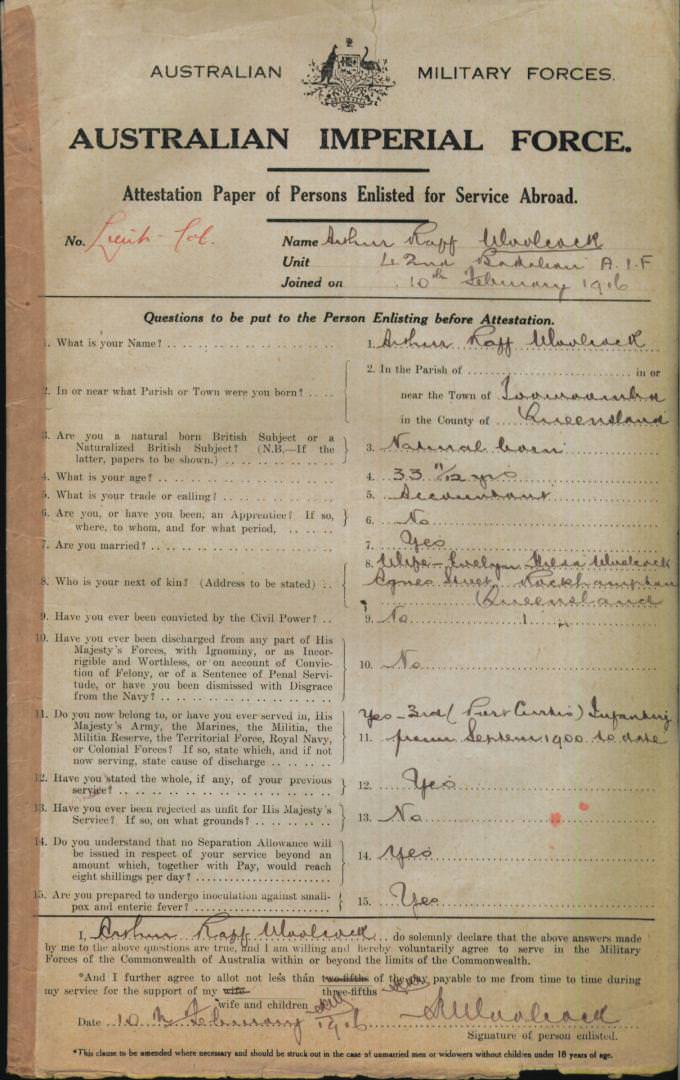 AUSTRALIAN MILITARY FORCES.
AUSTRALIAN IMPERIAL FORCE.
Attestation Paper of Persons Enlisted for Service Abroad.
No. Lieut-Col.
Name Arthur Raff Woolcock
Unit 42nd Battalion A.I.F
Joined on 10th February 1916
Questions to be put to the Person Enlisting before Attestation.
1. What is your Name? 1. Arthur Raff Woolcock
2. In or near what Parish or Town were you born? 2. In the Parish of in or
near the Town of Toowoomba
in the County of Queensland
3. Are you a natural born British Subject or a
Naturalized British Subject? (N.B.—If the
latter, papers to be shown.) 3. Natural born
4. What is your age? 4. 33 11/12 yrs
5. What is your trade or calling? 5. Accountant
6. Are you, or have you been, an Apprentice? If so,
where, to whom, and for what period, 6. No
7. Are you married? 7. Yes
8. Who is your next of kin? (Address to be stated) 8. Wife - Evelyn Woolcock
Agnes Street Rockhampton
Queensland
9. Have you ever been convicted by the Civil Power? 9. No
10. Have you ever been discharged from any part of His
Majesty's Forces, with Ignominy, or as Incor-
rigible and Worthless, or on account of Convic-
tion of Felony, or of a Sentence of Penal Servi-
tude, or have you been dismissed with Disgrace
from the Navy? 10. No
11. Do you now belong to, or have you ever served in, His
Majesty's Army, the Marines, the Militia, the
Militia Reserve, the Territorial Force, Royal Navy,
or Colonial Forces? If so, state which, and if not
now serving, state cause of discharge 11. Yes - 3rd (Port Curtis) Infantry
from Septem 1900 to date
12. Have you stated the whole, if any, of your previous
service? 12. Yes
13. Have you ever been rejected as unfit for His Majesty's
Service? If so, on what grounds? 13. No
14. Do you understand that no Separation Allowance will
be issued in respect of your service beyond an
amount which, together with Pay, would reach
eight shillings per day? 14. Yes
15. Are you prepared to undergo inoculation against small-
pox and enteric fever? 15. Yes
I, Arthur Raff Woolcock do solemnly declare that the above answers made
by me to the above questions are true, and I am willing and hereby voluntarily agree to serve in the Military
Forces of the Commonwealth of Australia within or beyond the limits of the Commonwealth.
*And I further agree to allot not less than two-fifths of the pay payable to me from time to time during
three-fifths
my service for the support of my wife
wife and children
Date 10th February 1916 ARWoolcock
Signature of person enlisted.
*This clause to be amended where necessary and should be struck out in the case of unmarried men or widowers without children under 18 years of age.